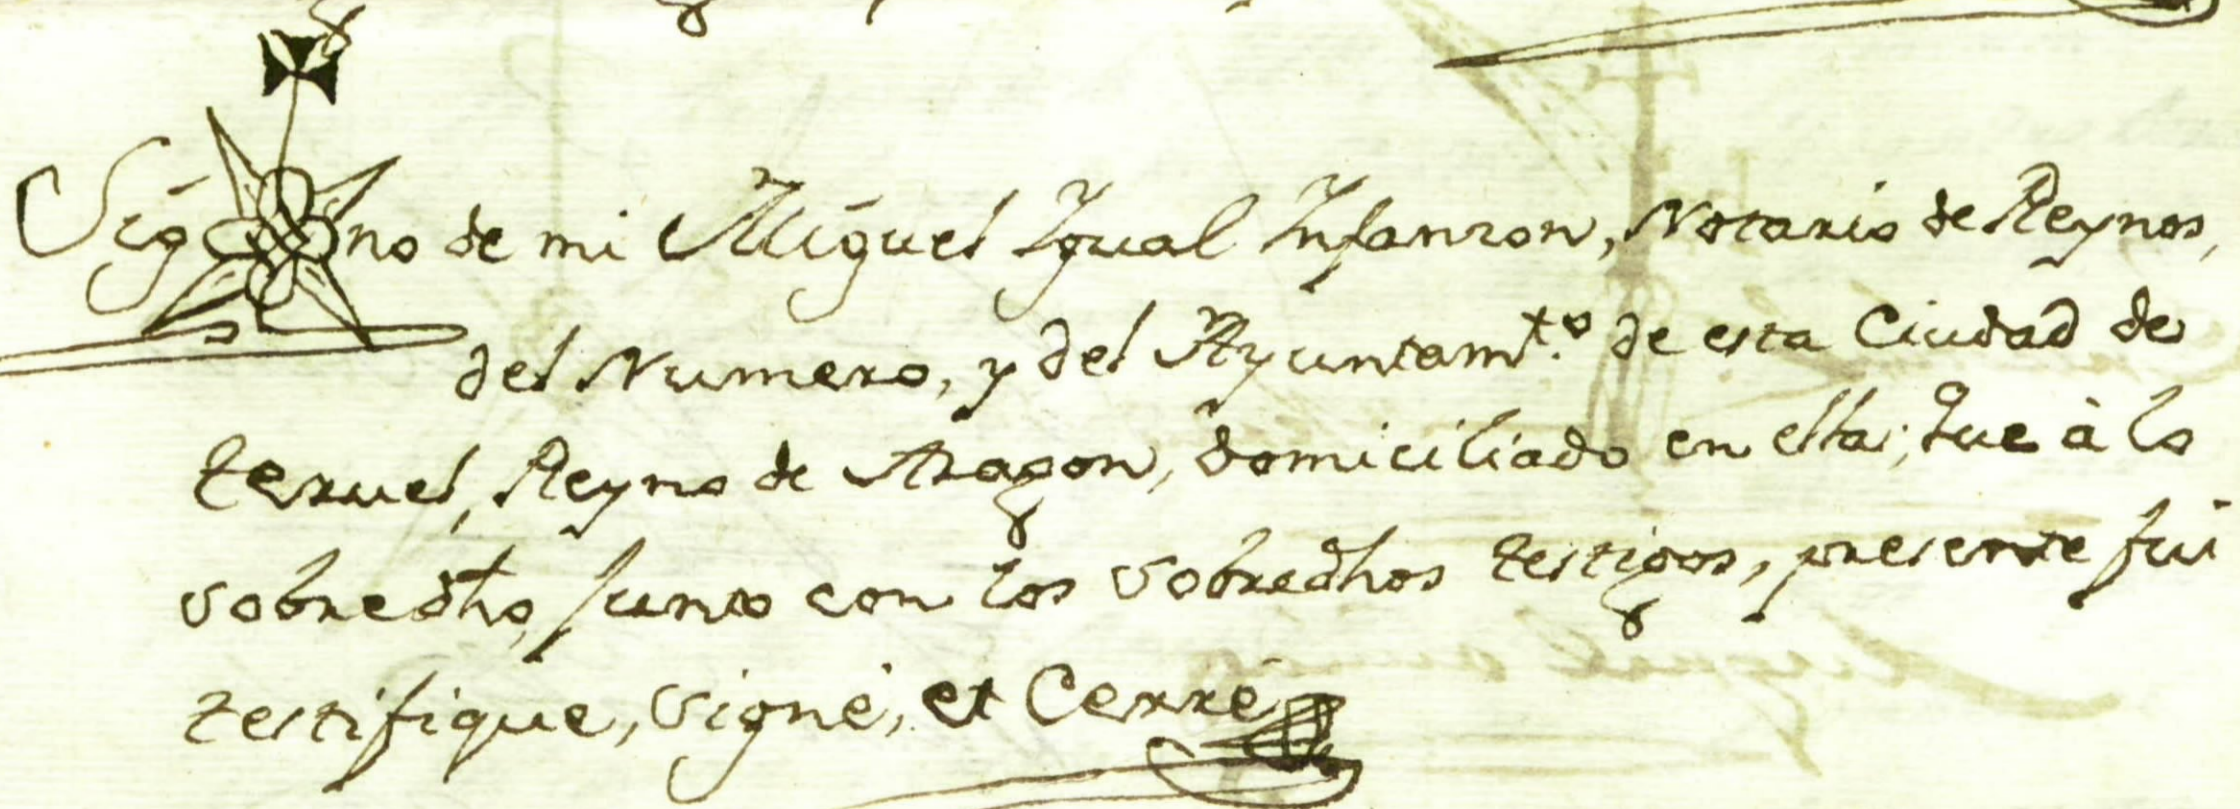 Sig no de mi Miguel Igual Infanzon, Notario de Reynos,
del Numero, y del Ayuntamt.º de esta Ciudad de
teruel, Reyno de Aragon, domiciliado en ella; Que à lo
sobredho, junto con los sobredhos testigos, presente fui
testifique, signé, et Cerré